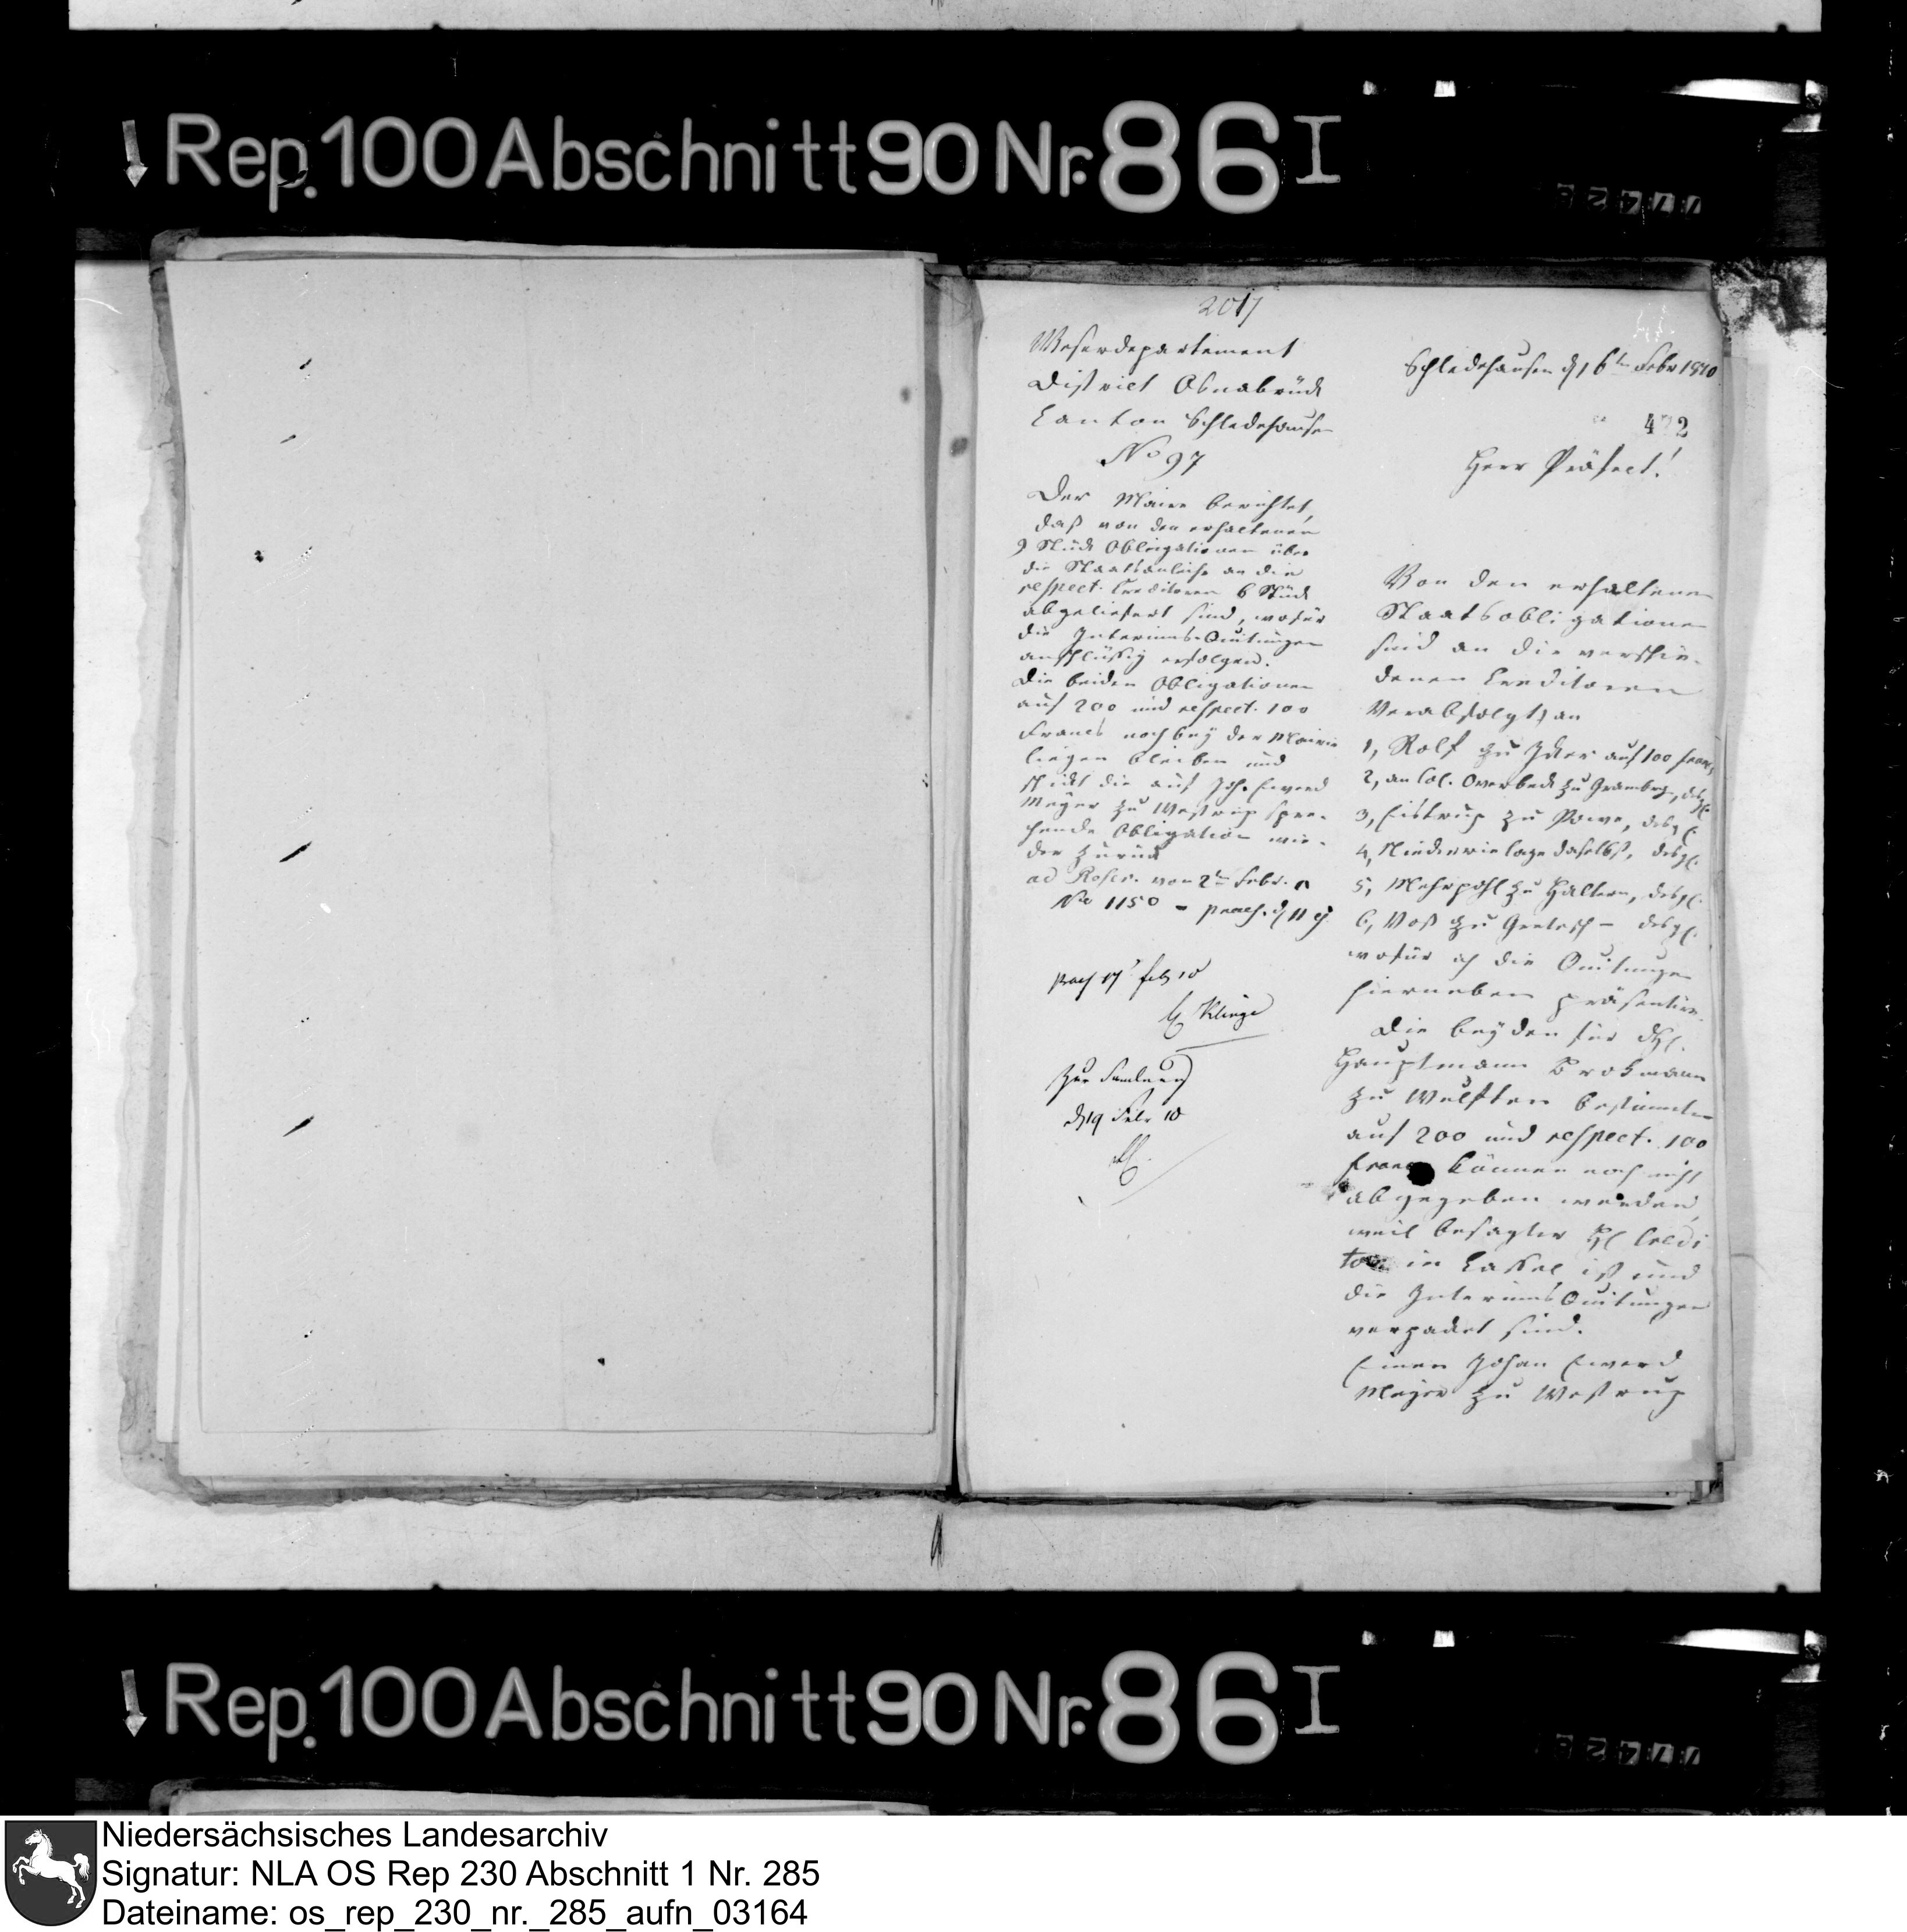 Rep. 100 Abschnitt 90 Nr. 86 I
2017
Weserdepartement
District Osnabrück
Canton Schledehausen
No 97
Der Maire berichtet,
daß von den erhaltenen
9 Stück Obligationen über
die Staatsanleihe an die
respect. Creditoren 6 Stück
abgeliefert sind, wofür
die Interims-Quitungen
anschlüßig erfolgen.
Die beiden Obligationen
auf 200 und respect. 100
Francs noch bey der Mairie
liegen bleiben und
schickt die auf Joh. Everd
Meyer zu Westrup spre-
chende Obligation wie-
der zurück
ad Rescr. von 2ten Febr.
No 1150 - praes. d 11 ej.
praes 17 feb 10
Klinge
Zur Samlung
d 19 Febr 10
Schledehausen d 16ten Febr 1810
472
Herr Präfect!
Von den erhaltenen
Staatsobligationen
sind an die verschie-
denen Creditoren
Verabfolgt, an
1, Rolf zu Jker auf 100 francs
2, an Col. Overbeck zu Grambrg, desgl.
3, Eistrup zu Powe, desgl.
4, Niederwielage daselbst, desgl.
5, Mehrpohl zu Haltern, desgl.
6, Voß zu Gretesch - desgl.
wofür ich die Quitungen
hierneben präsentire.
Die beyden für
Hauptmann Brokmann
zu Wulften bestimmten
auf 200 und respect. 100
franc können noch nicht
abgegeben werden,
weil besagter H Credi
tor in Cassel ist und
die Interims Quitungen
verpackt sind.
Einen Johan Everd
Meyer zu Westrup
Rep. 100 Abschnitt 90 Nr. 86 I
Niedersächsisches Landesarchiv
Signatur: NLA OS Rep 230 Abschnitt 1 Nr. 285
Dateiname: os_rep_230_nr._285_aufn_03164